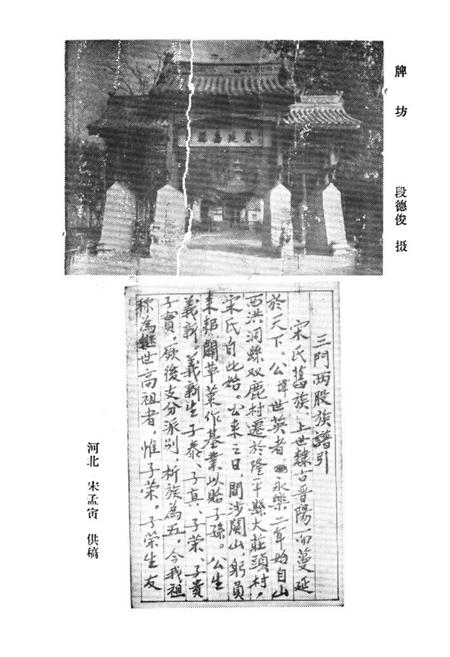 牌坊 段德俊 摄
三門两股族譜引
宋氏舊族，上世隸古晋陽，而蔓延
於天下。公諱世英者，永樂二年始自山
西洪洞縣双鹿村遷於隆平縣大莊頭村，
宋氏自此始。公来之日，間涉関山，躬負
耒耜闢草莱作基業以貽子孫。公生
義新，義新生子泰、子真、子荣、子貴
子實，厥後支分派别，析族為五，今我祖
称為継世高祖者，惟子荣。子荣生友
河北 宋孟寅 供稿